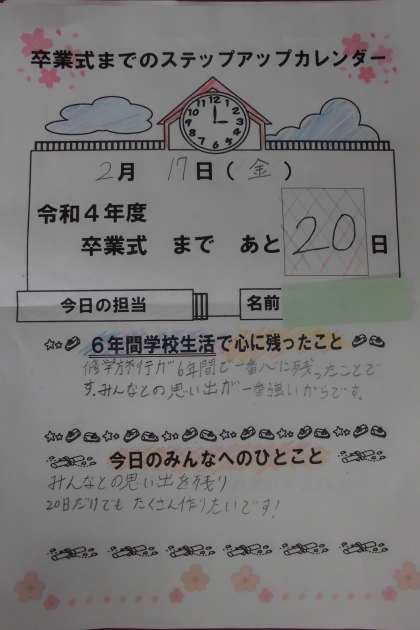 卒業式までのステップアップカレンダー
12 1 2 3 4 5 6 7 8 9 10 11
2月 17日(金)
令和4年度
卒業式 まで あと 20 日
今日の担当 名前
6年間学校生活で心に残ったこと
修学旅行が6年間で一番心に残ったことで
す。みんなとの思い出が一番強いからです。
今日のみんなへのひとこと
みんなとの思い出を残り
20日だけでも たくさん作りたいです!